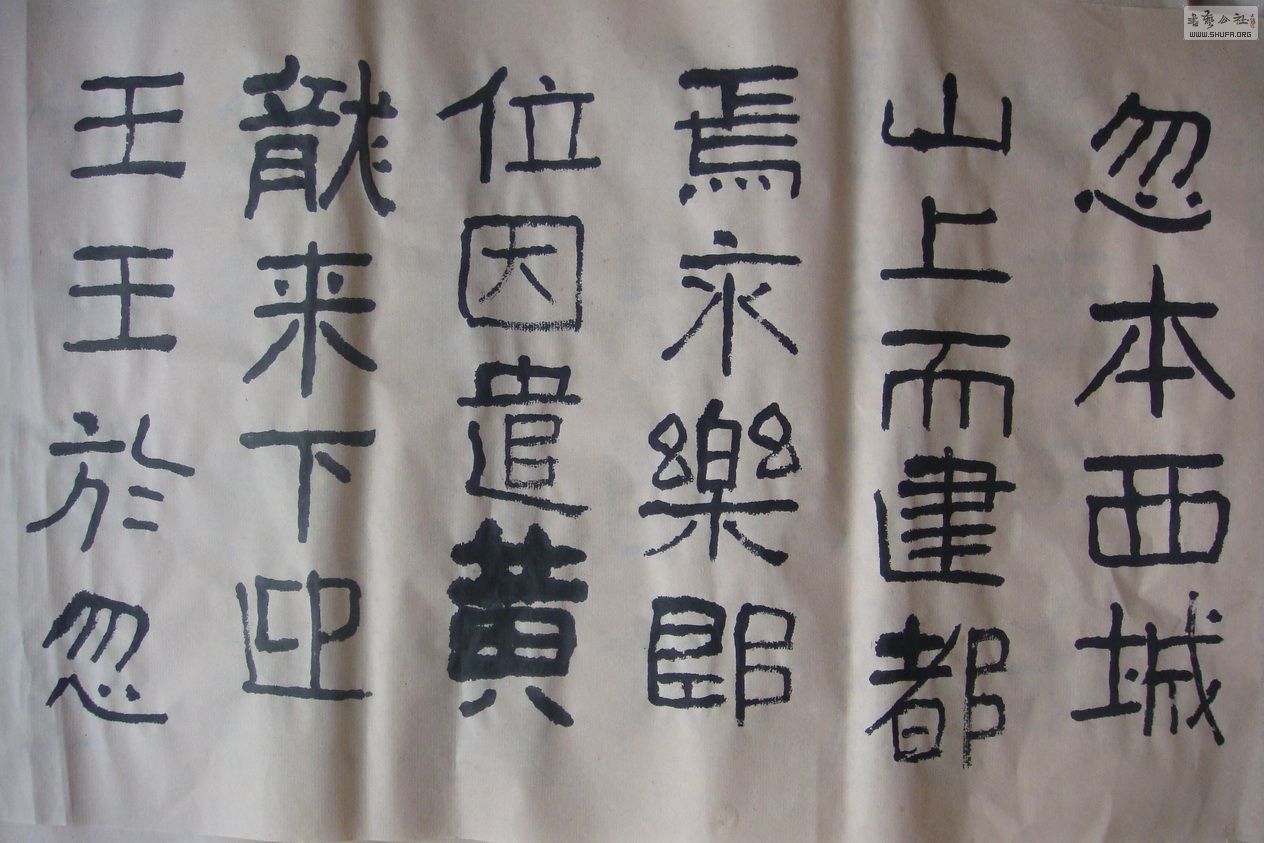 忽本西城
山上而建都
焉永樂郎
位因遣黃
龍来下迎
王王於忽
书艺公社
WWW.SHUFA.ORG